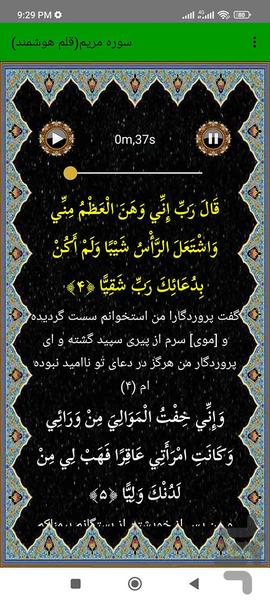 9:29 PM
سوره مریم(قلم هوشمند)
0m,37s
قَالَ رَبِّ إِنِّي وَهَنَ الْعَظْمُ مِنِّي
وَاشْتَعَلَ الرَّأْسُ شَيْبًا وَلَمْ أَكُنْ
بِدُعَائِكَ رَبِّ شَقِيًّا ﴿۴﴾
گفت پروردگارا من استخوانم سست گردیده
و [موی] سرم از پیری سپید گشته و ای
پروردگار من هرگز در دعای تو ناامید نبوده
ام (۴)
وَإِنِّي خِفْتُ الْمَوَالِيَ مِنْ وَرَائِي
وَكَانَتِ امْرَأَتِي عَاقِرًا فَهَبْ لِي مِنْ
لَدُنْكَ وَلِيًّا ﴿۵﴾